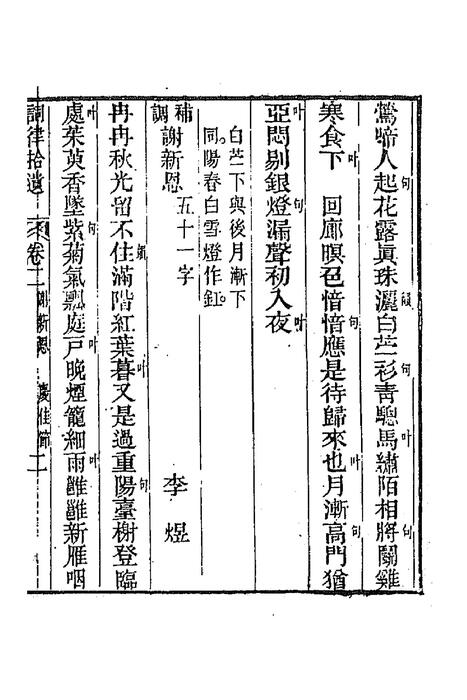 鶯啼人起句花露眞珠灑韻白苎衫句靑驄馬叶繡陌相將句鬬雞
寒食下叶　回廊暝色愔愔句應是待歸來也叶月漸高句門猶
亞叶悶剔銀燈句漏聲初入夜叶
白苎下與後月漸下
同陽春白雪燈作釭
補調 謝新恩 五十一字 李煜
冉冉秋光留不住韻滿階紅葉暮叶又是過重陽句臺榭登臨
處叶茱萸香墜句紫菊氣飄庭戶叶晚煙籠細雨叶雝雝新雁咽
詞律拾遺 卷二 謝新恩 慶佳節 二